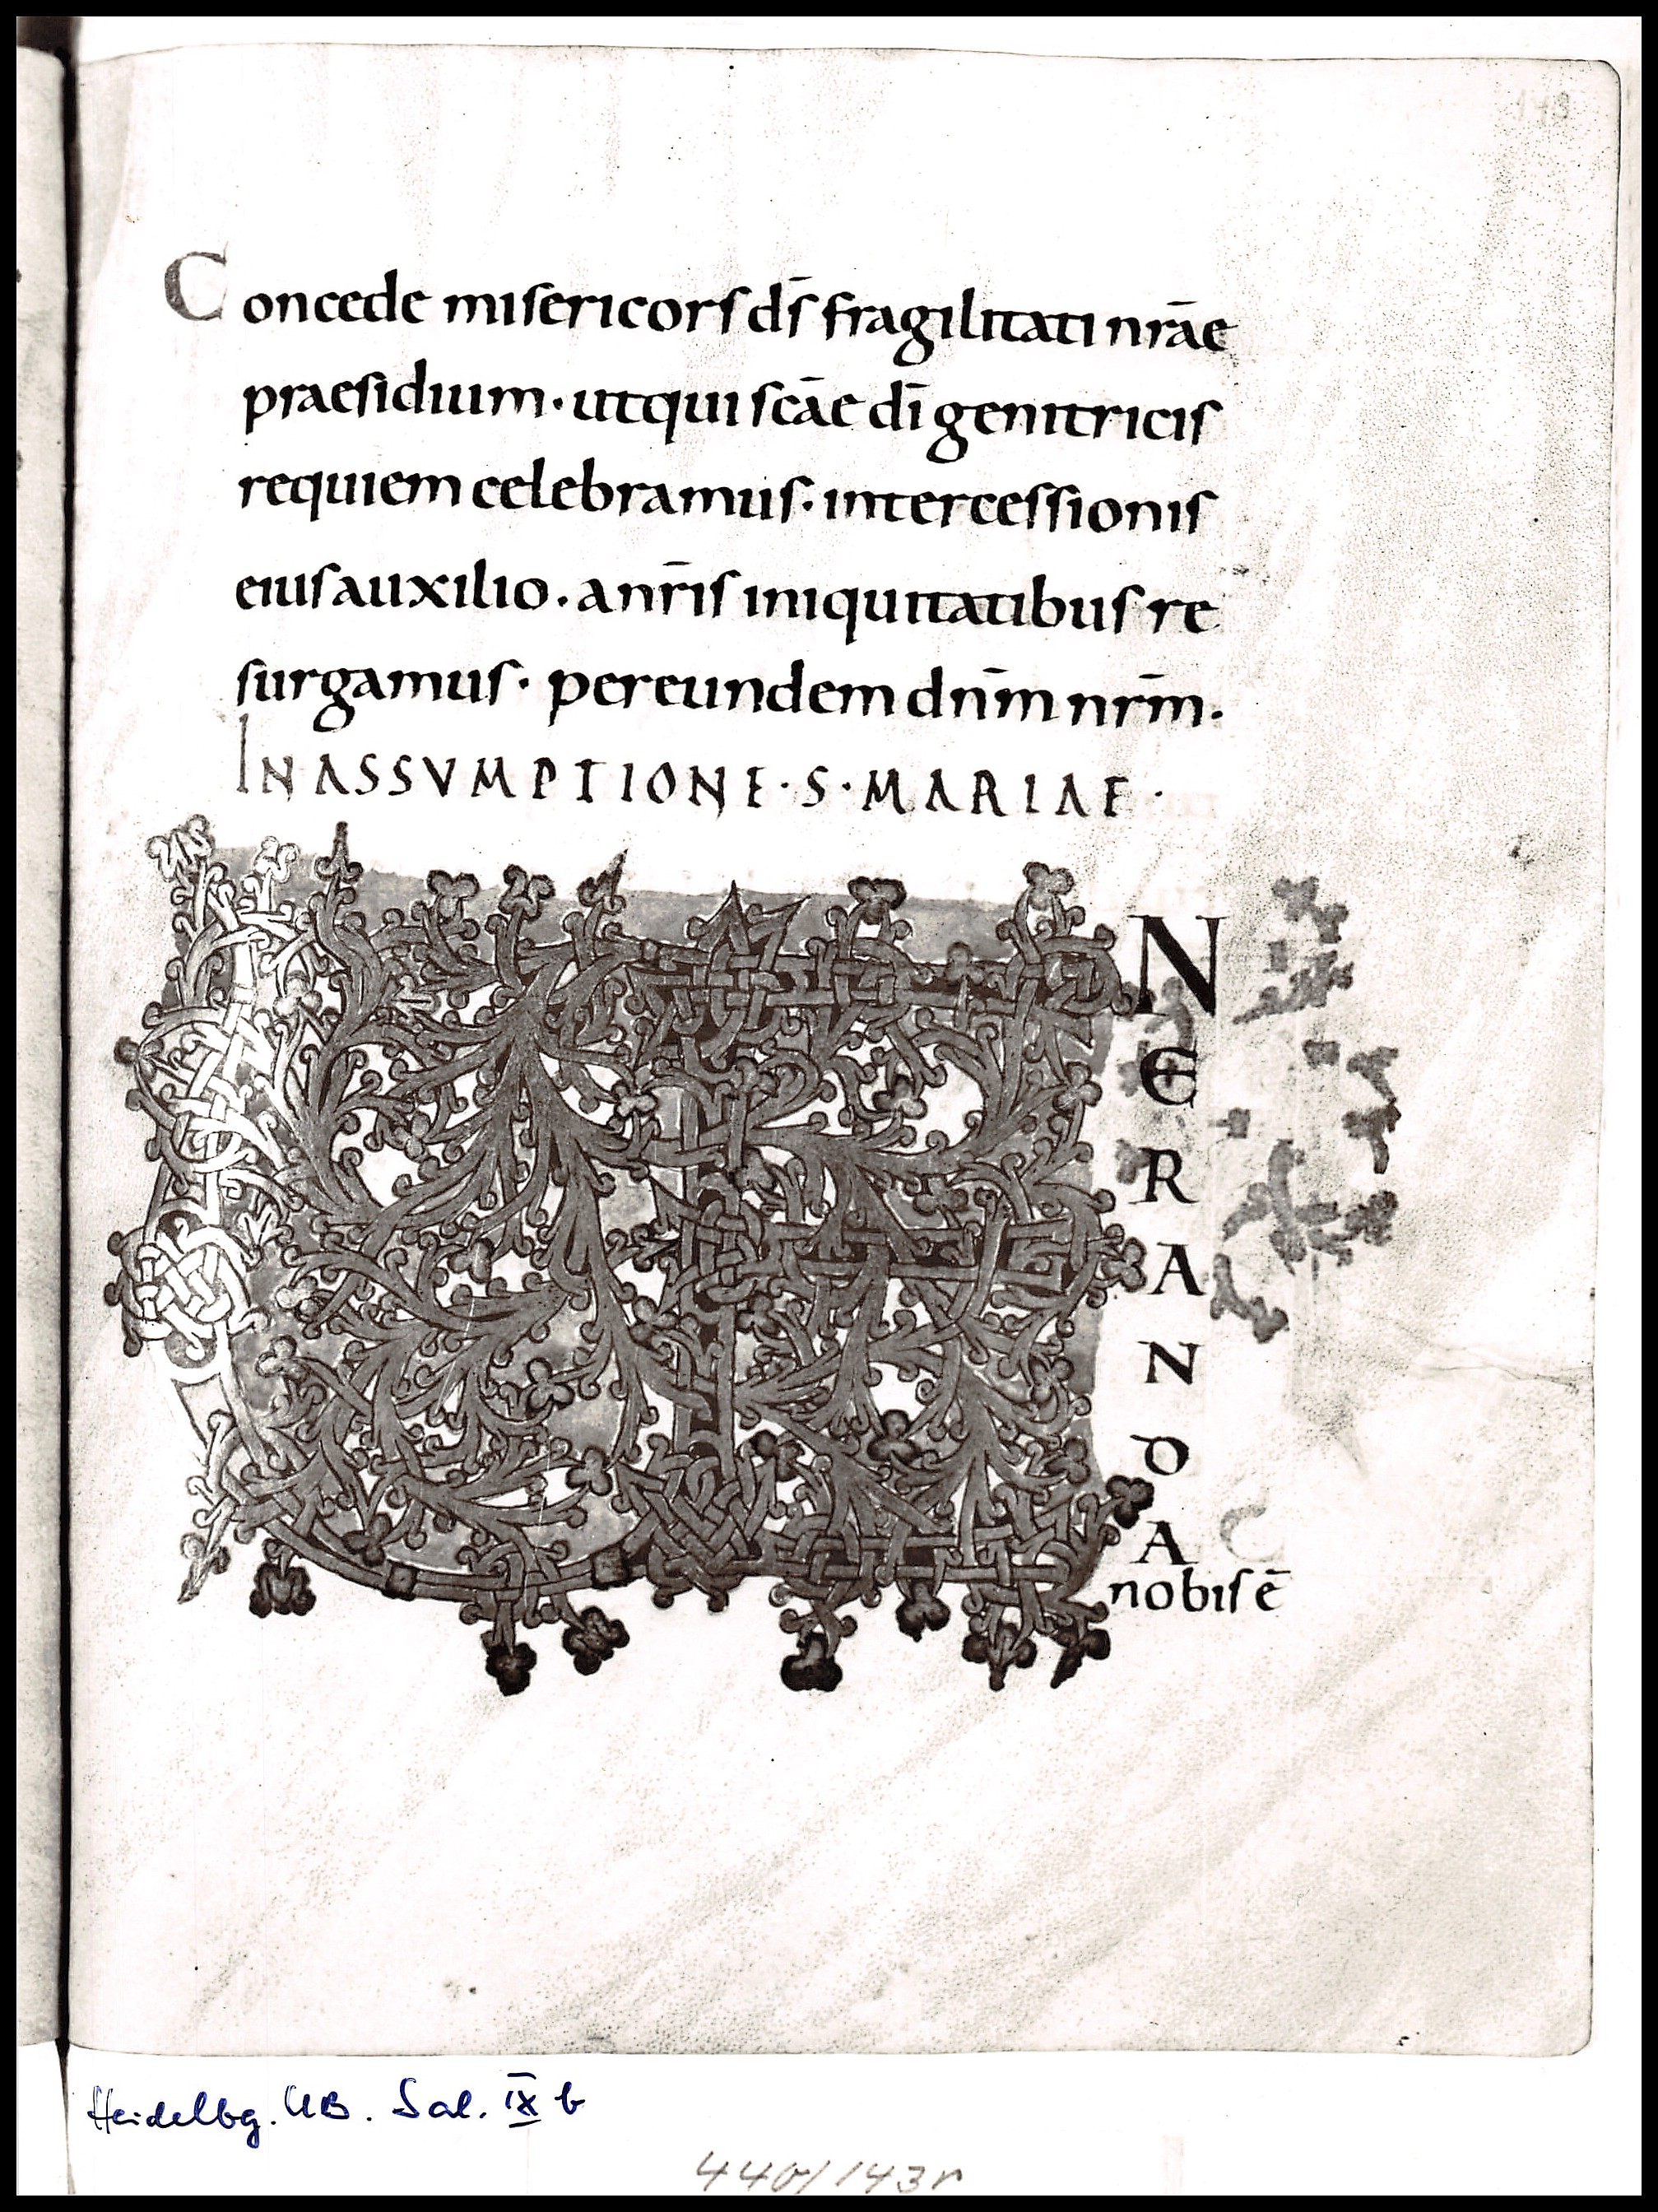 Concede misericors ds̄ fragilitati nrāe
praesidium · utqui scāe dī genitricis
requiem celebramus · intercessionis
eiusauxilio · anrīs iniquitatibus re
surgamus · pereundem dnm̄ nrm̄ ·
INASSVMPTIONE · S · MARIAE ·
VE
N
E
R
A
N
D
A
nobis ē
Heidelbg. UB. Sal. IX b
440/143r